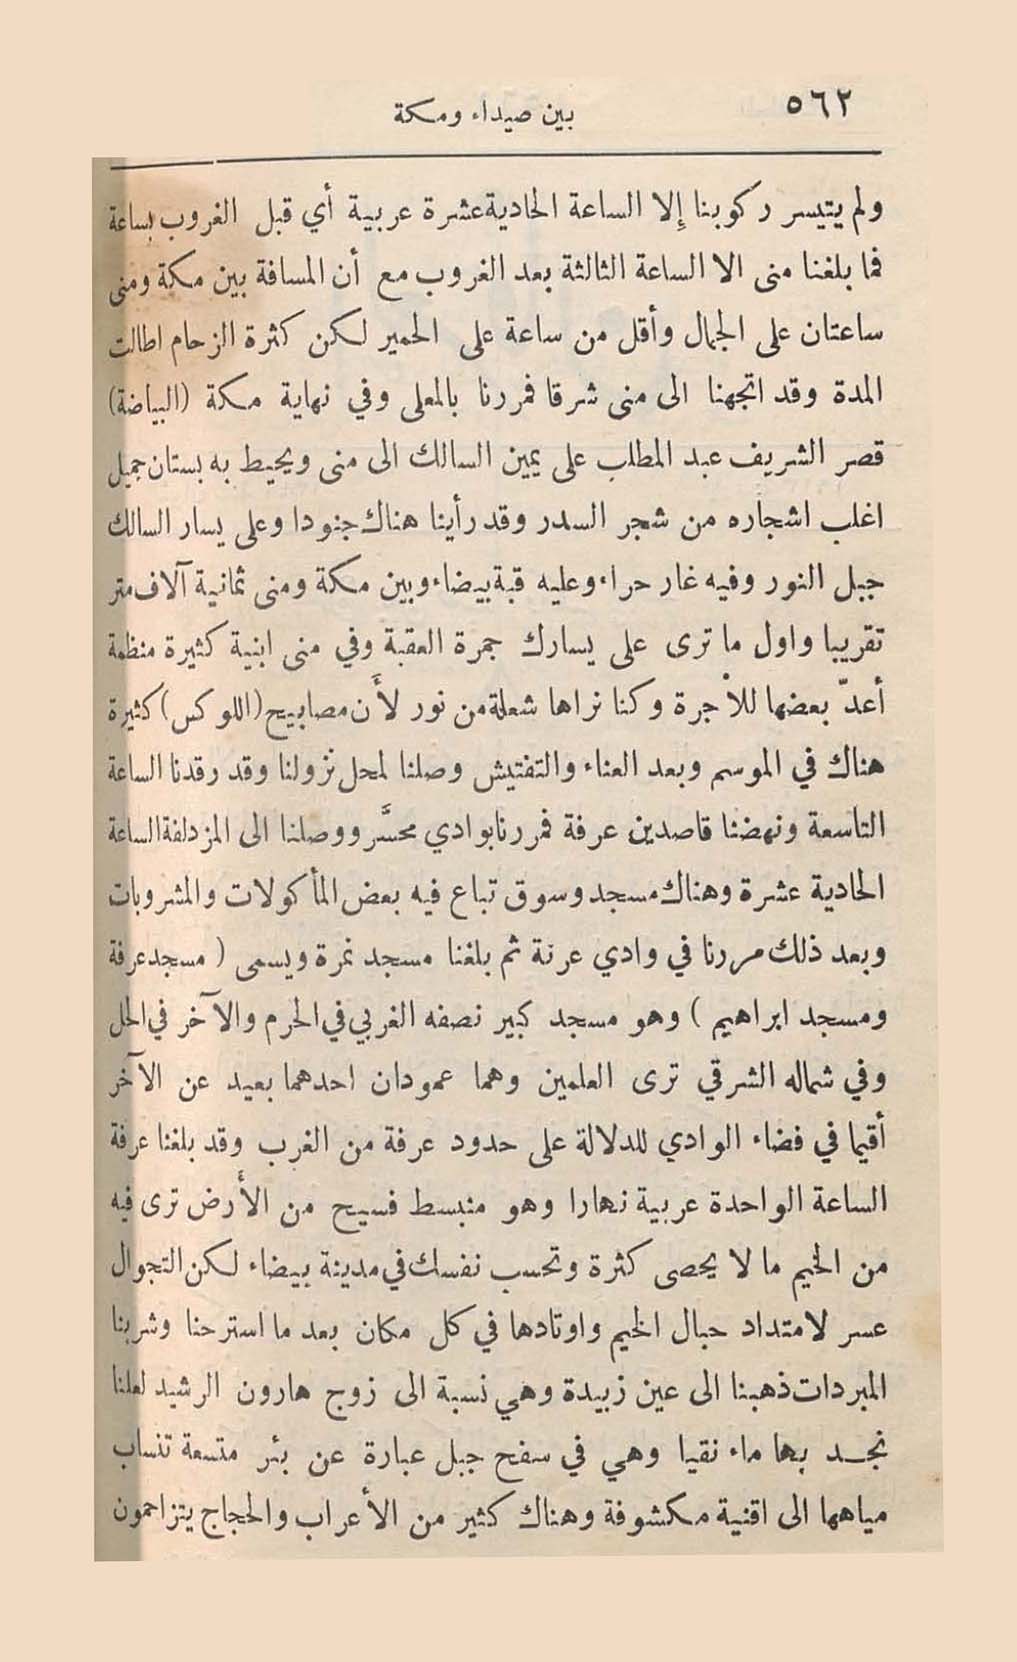 ٥٦٢
بين صيداء ومكة
ولم يتيسر ركوبنا إلا الساعة الحادية عشرة عربية أي قبل الغروب بساعة
فما بلغنا منى الا الساعة الثالثة بعد الغروب مع أن المسافة بين مكة ومنى
ساعتان على الجمال وأقل من ساعة على الحمير لكن كثرة الزحام اطالت
المدة وقد اتجهنا الى منى شرقا فمررنا بالمعلى وفي نهاية مكة (البياضة)
قصر الشريف عبد المطلب على يمين السالك الى منى ويحيط به بستان جميل
اغلب اشجاره من شجر السدر وقد رأينا هناك جنودا وعلى يسار السالك
جبل النور وفيه غار حراء وعليه قبة بيضاء وبين مكة ومنى ثمانية آلاف متر
تقريبا واول ما ترى على يسارك جمرة العقبة وفي منى ابنية كثيرة منظمة
أعدّ بعضها للأجرة وكنا نراها شعلة من نور لأَن مصابيح (اللوكس) كثيرة
هناك في الموسم وبعد العناء والتفتيش وصلنا لمحل نزولنا وقد رقدنا الساعة
التاسعة ونهضنا قاصدين عرفة فمررنا بوادي محسَّر ووصلنا الى المزدلفة الساعة
الحادية عشرة وهناك مسجد وسوق تباع فيه بعض المأكولات والمشروبات
وبعد ذلك مررنا في وادي عرنة ثم بلغنا مسجد نمرة ويسمى ( مسجد عرفة
ومسجد ابراهيم ) وهو مسجد كبير نصفه الغربي في الحرم والآخر في الحل
وفي شماله الشرقي ترى العلمين وهما عمودان احدهما بعيد عن الآخر
أقيما في فضاء الوادي للدلالة على حدود عرفة من الغرب وقد بلغنا عرفة
الساعة الواحدة عربية نهارا وهو منبسط فسيح من الأَرض ترى فيه
من الخيم ما لا يحصى كثرة وتحسب نفسك في مدينة بيضاء لكن التجوال
عسر لامتداد حبال الخيم واوتادها في كل مكان بعد ما استرحنا وشربنا
المبردات ذهبنا الى عين زبيدة وهي نسبة الى زوج هارون الرشيد لعلنا
نجد بها ماء نقيا وهي في سفح جبل عبارة عن بئر متسعة تنساب
مياهها الى اقنية مكشوفة وهناك كثير من الأعراب والحجاج يتزاحمون